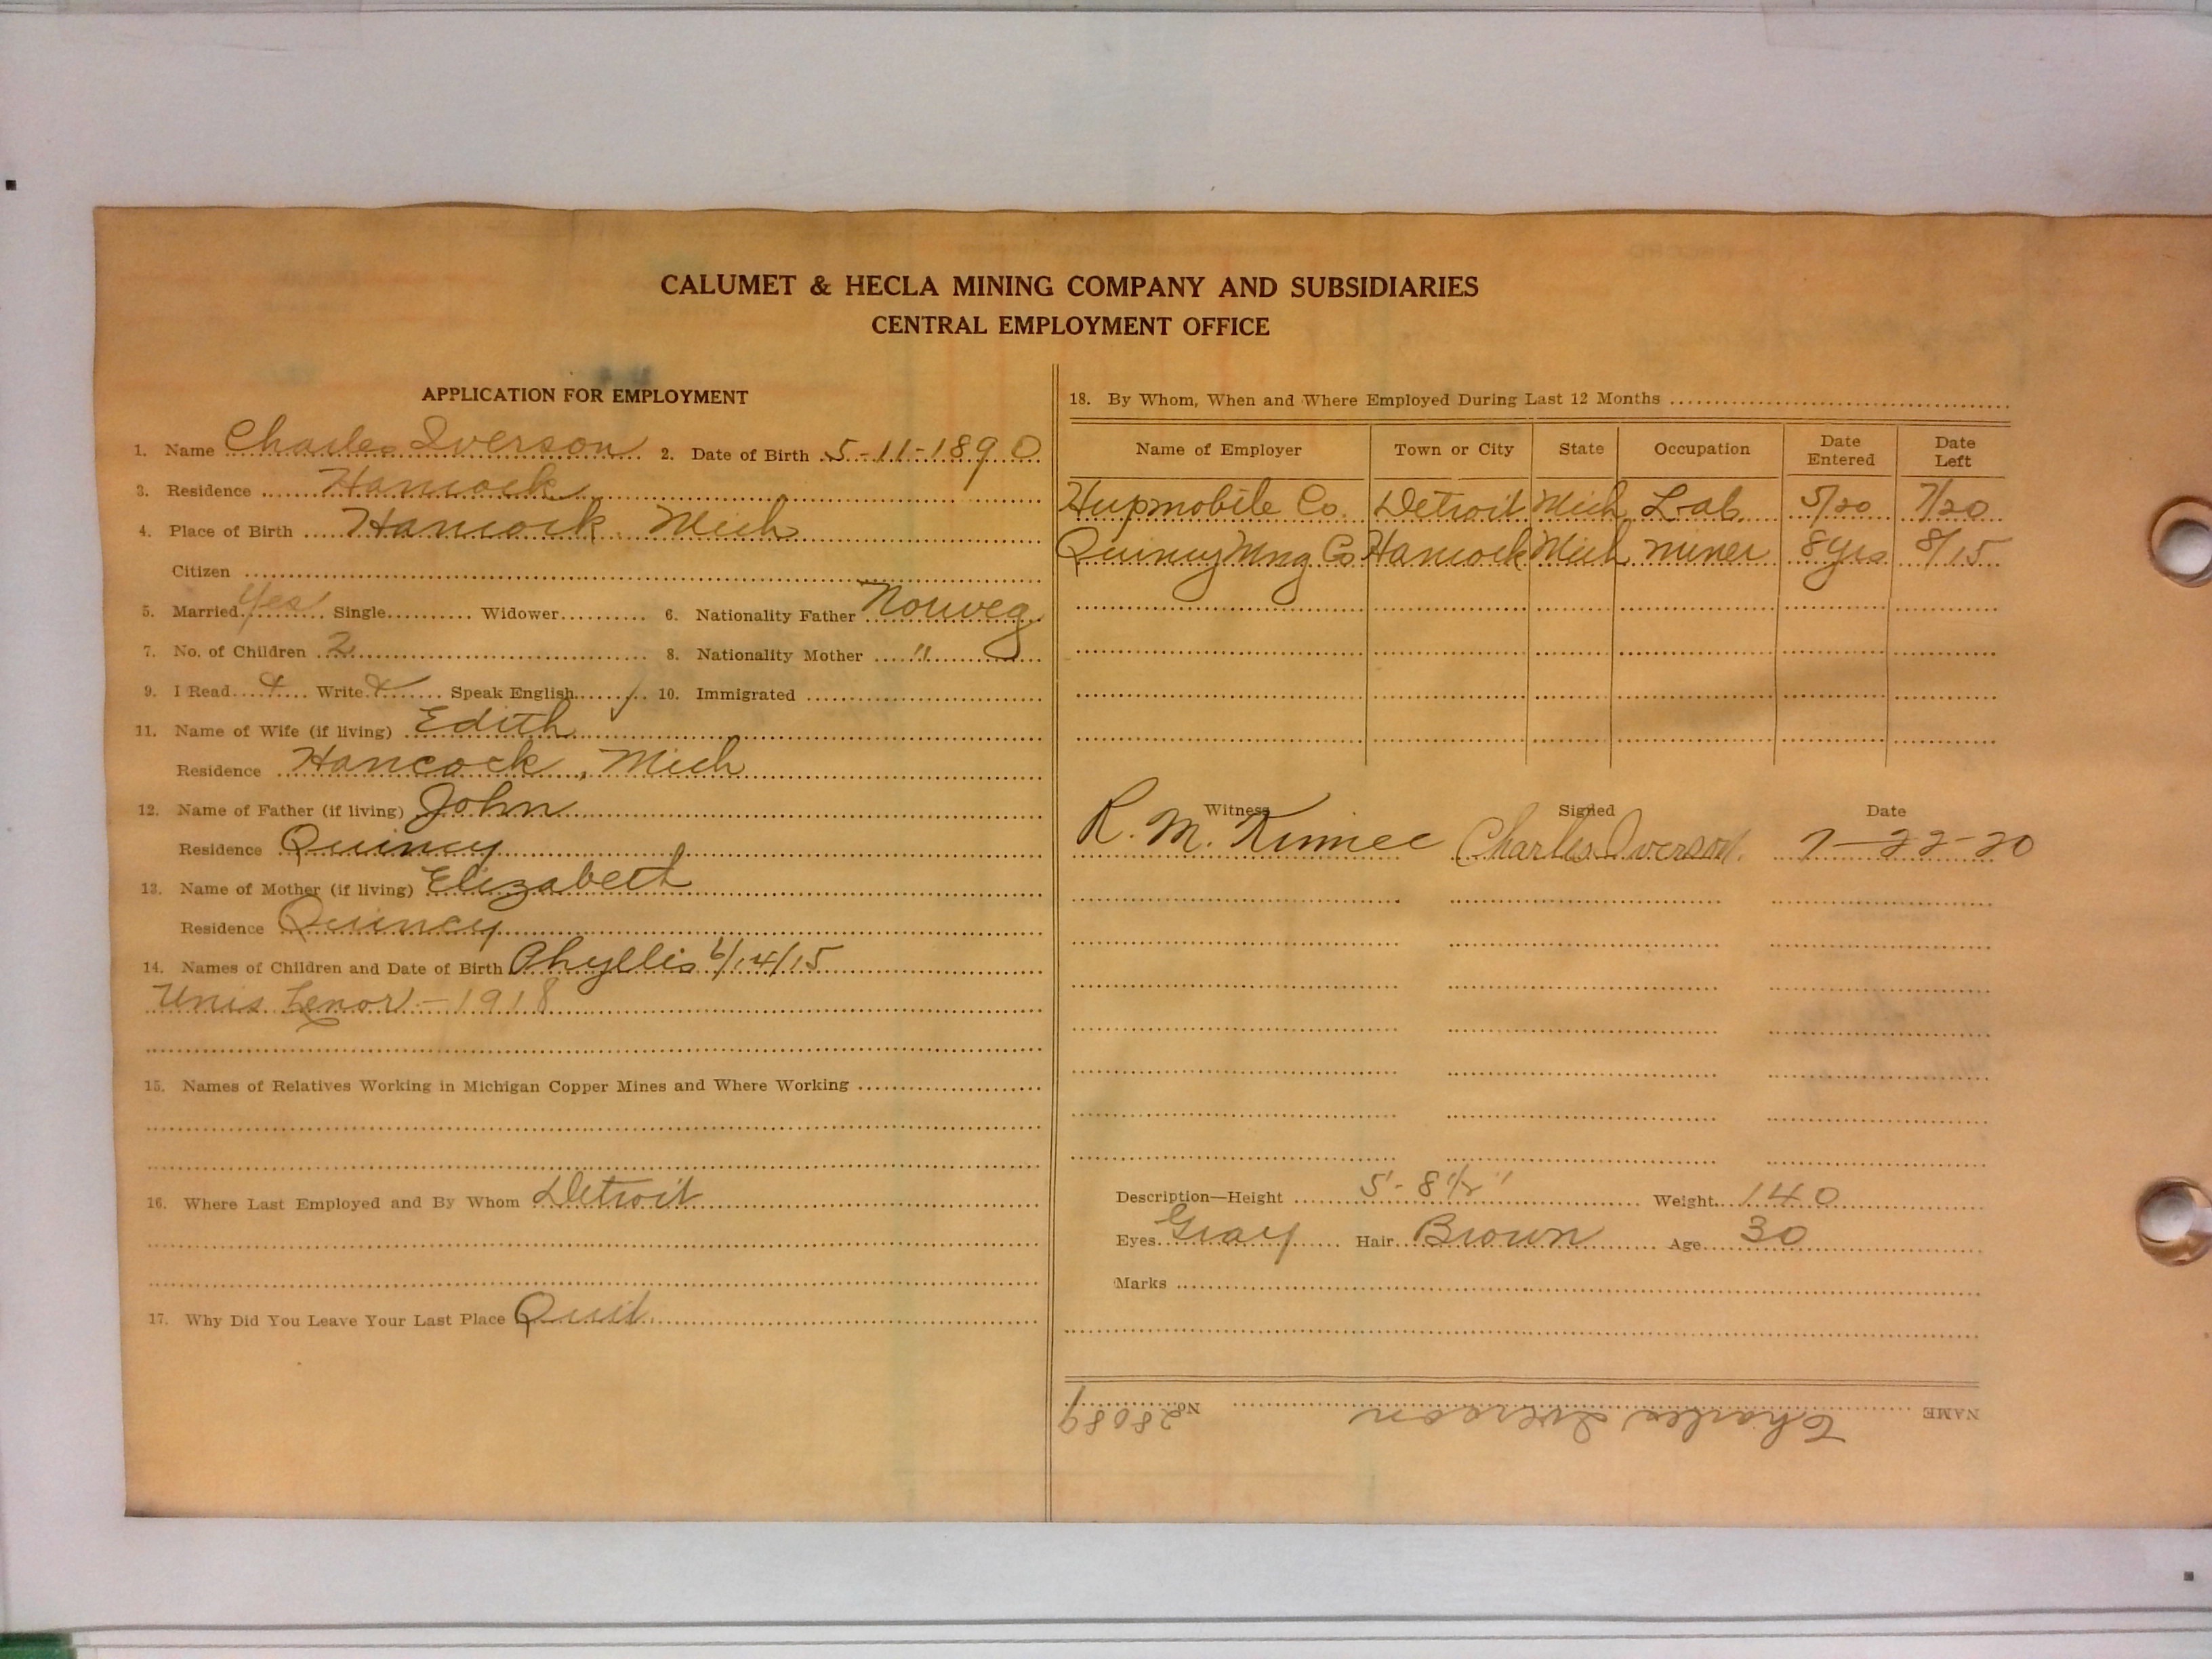 CALUMET & HECLA MINING COMPANY AND SUBSIDIARIES
CENTRAL EMPLOYMENT OFFICE
APPLICATION FOR EMPLOYMENT
1. Name Charles Iverson 2. Date of Birth 5-11-1890
3. Residence Hancock
4. Place of Birth Hancock Mich
Citizen
5. Married Yes Single Widower 6. Nationality Father Norweg
7. No. of Children 2 8. Nationality Mother "
9. I Read Write Speak English 10. Immigrated
11. Name of Wife (if living) Edith
Residence Hancock, Mich
12. Name of Father (if living) John
Residence Quincy
13. Name of Mother (if living) Elizabeth
Residence Quincy
14. Names of Children and Date of Birth Phyllis 6/14/15
Unis Lenor - 1918
15. Names of Relatives Working in Michigan Copper Mines and Where Working
16. Where Last Employed and By Whom Detroit
17. Why Did You Leave Your Last Place Quit
18. By Whom, When and Where Employed During Last 12 Months
Name of Employer Town or City State Occupation Date Entered Date Left
Hupmobile Co. Detroit Mich Lab. 5/20 7/20
Quincy Mng Co Hancock Mich miner 8 yrs 8/15
Witness Signed Date
R. M. Charles Iverson. 7-22-20
Description—Height 5'-8 1/2" Weight 140
Eyes Gray Hair Brown Age 30
Marks
NAME Charles Iverson No. 28089